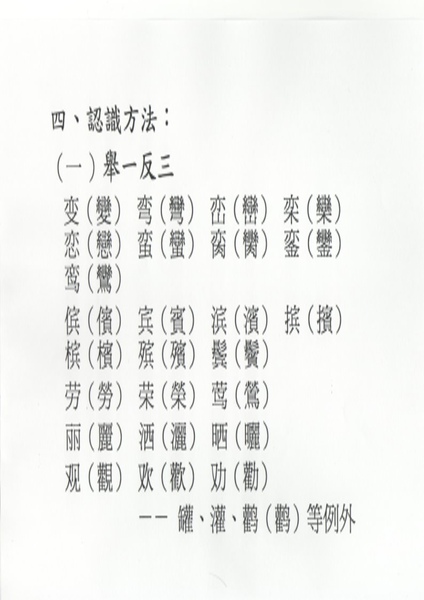 四、認識方法：
（一）舉一反三
变（變） 弯（彎） 峦（巒） 栾（欒）
恋（戀） 蛮（蠻） 脔（臠） 銮（鑾）
鸾（鸞）
傧（儐） 宾（賓） 滨（濱） 摈（擯）
槟（檳） 殡（殯） 鬓（鬢）
劳（勞） 荣（榮） 莺（鶯）
丽（麗） 洒（灑） 晒（曬）
观（觀） 欢（歡） 劝（勸）
—— 罐、灌、鹳（鸛）等例外